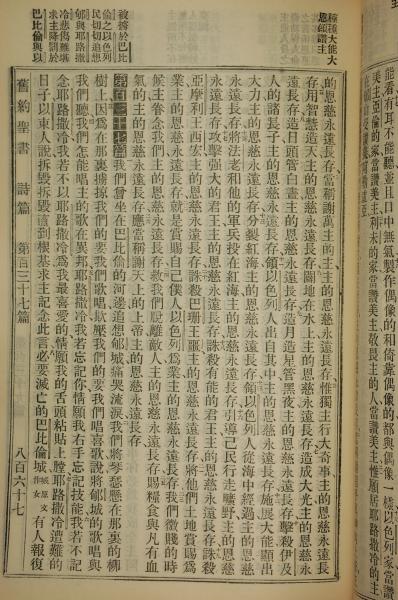 能看有耳不能聽並且口中無氣製作偶像的和倚靠偶像的與偶像一樣以色列家當讚
美主亞倫的家當讚美主利未的家當讚美主敬畏主的人當讚美主惟願居耶路撒冷的主
種種大能大
恩頌讚主
被擄於巴比
倫之以色列
民切切追想
郇與耶路撒
冷悲傷難堪
求主降罰於
巴比倫與以
的恩慈永遠長存當稱謝萬主的主主的恩慈永遠長存惟獨主行大奇事主的恩慈永遠長
存用智慧造天主的恩慈永遠長存闢地在水上主的恩慈永遠長存造成大光主的恩慈永
遠長存造日頭管白晝主的恩慈永遠長存造月造星管黑夜主的恩慈永遠長存擊殺伊及
人的諸長子主的恩慈永遠長存領以色列人出自其中主的恩慈永遠長存施展大能顯出
大力主的恩慈永遠長存分裂紅海主的恩慈永遠長存領以色列人從海中經過主的恩慈
永遠長存將法老和他的軍兵投在紅海主的恩慈永遠長存引導己民行走曠野主的恩慈
永遠長存攻擊强大的君王主的恩慈永遠長存誅殺有能的君王主的恩慈永遠長存誅殺
亞摩利王西宏主的恩慈永遠長存誅殺巴珊王噩主的恩慈永遠長存將他們土地賞賜爲
業主的恩慈永遠長存就是賞賜自己僕人以色列爲業主的恩慈永遠長存我們微賤的時
候主眷念我們主的恩慈永遠長存救我們脫離敵人主的恩慈永遠長存賜糧食與凡有血
氣的主的恩慈永遠長存應當稱謝天上的上帝主的恩慈永遠長存
第一百三十七篇我們曾坐在巴比倫的河邊追想郇城痛哭流淚我們將琴瑟懸在那裏的柳
樹上因爲在那裏擄掠我們的要我們歌唱欺壓我們的要我們唱喜歌說將郇城的歌唱與
我們聽我們怎能唱主的歌在異邦耶路撒冷我若忘記你情願我右手忘記技能我若不記
念耶路撒冷我若不以耶路撒冷爲我最喜愛的情願我的舌頭粘貼上膛耶路撒冷遭難的
日子以東人說拆毀拆毀直到根基求主記念此言必要滅亡的巴比倫城城原文作女有人報復
舊約聖書 詩篇 第一百三十七篇 八百六十七